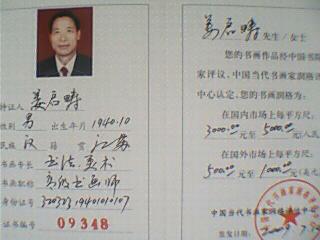 持证人 姜启畴
性别 男 出生年月 1940.10
民族 汉 籍贯 江苏
书画专长 书法.美术
书画职称 高级书画师
身份证号
证书编号 09348
姜启畴 先生/女士
您的书画作品经中国书院
家评议，中国当代书画家润格评
中心认定，您的书画润格为：
在国内市场上每平方尺：
3000.00元至5000.00元(人民
在国外市场上每平方尺：
500.00元至1000.00元(美
中国当代书画家润格评
签发日期：